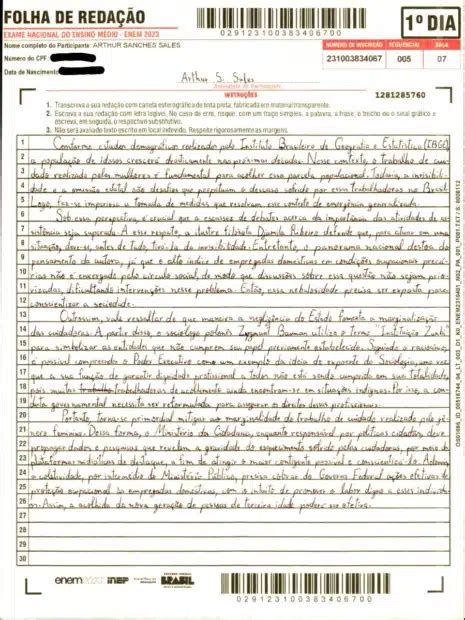 FOLHA DE REDAÇÃO
EXAME NACIONAL DO ENSINO MÉDIO - ENEM 2023
029123100383406700
1º DIA
Nome completo do Participante: ARTHUR SANCHES SALES
Número do CPF:
Data de Nascimento:
NÚMERO DE INSCRIÇÃO
231003834067
SEQUENCIAL
005
SALA
07
Arthur S. Sales
Assinatura do Participante
INSTRUÇÕES
1281285760
1. Transcreva a sua redação com caneta esferográfica de tinta preta, fabricada em material transparente.
2. Escreva a sua redação com letra legível. No caso de erro, risque, com um traço simples, a palavra, a frase, o trecho ou o sinal gráfico e
escreva, em seguida, o respectivo substitutivo.
3. Não será avaliado texto escrito em local indevido. Respeite rigorosamente as margens.
1 Conforme estudos demográficos realizado pelo Instituto Brasileiro de Geografia e Estatística (IBGE)
2 a população de idosos crescerá drasticamente nas próximas décadas. Nesse contexto, o trabalho de cui-
3 dado realizado pelas mulheres é fundamental para acolher essa parcela populacional. Todavia, a invisibili-
4 dade e a omissão estatal são desafios que perpetuam o descaso sofrido por essas trabalhadoras no Brasil.
5 Logo, faz-se imperiosa a tomada de medidas que resolvam esse contexto de emergência generalizada.
6 Sob essa perspectiva, é crucial que a escassez de debates acerca da importância das atividades de as-
7 sistência seja superada. A esse respeito, a ilustre filósofa Djamila Ribeiro defende que, para atuar em uma
8 situação, deve-se, antes de tudo, tirá-la da invisibilidade. Entretanto, o panorama nacional destoa do
9 pensamento da autora, já que o alto índice de empregadas domésticas em condições ocupacionais precá-
10 rias não é enxergado pelo círculo social, de modo que discussões sobre essa questão não sejam prio-
11 rizadas, dificultando intervenções nesse problema. Então, essa nebulosidade precisa ser exposta para
12 conscientizar a sociedade.
13 Outrossim, vale ressaltar de que maneira a negligência do Estado fomenta a marginalização
14 das cuidadoras. A partir disso, o sociólogo polonês Zygmunt Bauman utiliza o termo "Instituição Zumbi"
15 para simbolizar as entidades que não cumprem seu papel previamente estabelecido. Seguindo o raciocínio,
16 é possível compreender o Poder Executivo como um exemplo da ideia do expoente da Sociologia, uma vez
17 que a sua função de garantir dignidade profissional a todos não está sendo cumprida em sua totalidade,
18 pois muitas trabalhadoras de acolhimento ainda encontram-se em situações indignas. Por isso, a con-
19 duta governamental necessita ser reformulada para assegurar os direitos desses profissionais.
20 Portanto, torna-se primordial mitigar a marginalidade do trabalho de cuidado realizado pelo gê-
21 nero feminino. Dessa forma, o Ministério da Cidadania, enquanto responsável por políticas cidadãs, deve
22 propagar dados e pesquisas que revelam a gravidade do esquecimento sofrido pelas cuidadoras, por meio de
23 plataformas midiáticas de destaque, a fim de atingir o maior contingente possível e conscientizá-lo. Ademais,
24 a coletividade, por intermédio do Ministério Público, precisa cobrar do Governo Federal ações efetivas de
25 proteção ocupacional às empregadas domésticas, com o intuito de promover o labor digno a esses indivídu-
26 os. Assim, a acolhida da nova geração de pessoas de terceira idade poderá ser efetiva.
27
28
29
30
enem2023
inep
BRASIL
029123100383406700